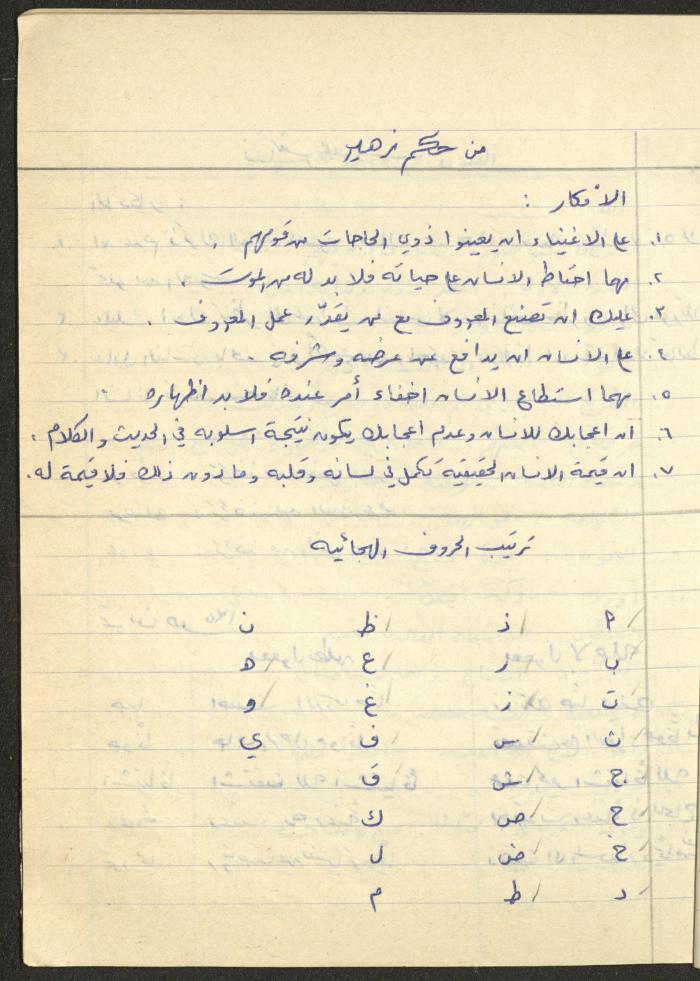 من حكم زهير
الأفكار :
١. على الاغنياء ان يعينوا ذوي الحاجات من قومهم .
٢. مهما احتاط الانسان على حياته فلا بد له من الموت .
٣. عليك ان تصنع المعروف مع من يقدّر عمل المعروف .
٤. على الانسان ان يدافع عن عرضه وشرفه .
٥. مهما استطاع الانسان اخفاء أمر عنده فلا بد اظهاره
٦. ان اعجابك للانسان وعدم اعجابك يكون نتيجة اسلوبه في الحديث والكلام .
٧. ان قيمة الانسان الحقيقية تكمل في لسانه وقلبه وما دون ذلك فلا قيمة له .
ترتيب الحروف الهجائيه
أ ذ ظ ن
ب ر ع ه
ت ز غ و
ث س ف ي
ج ش ق
ح ص ك
خ ض ل
د ط م